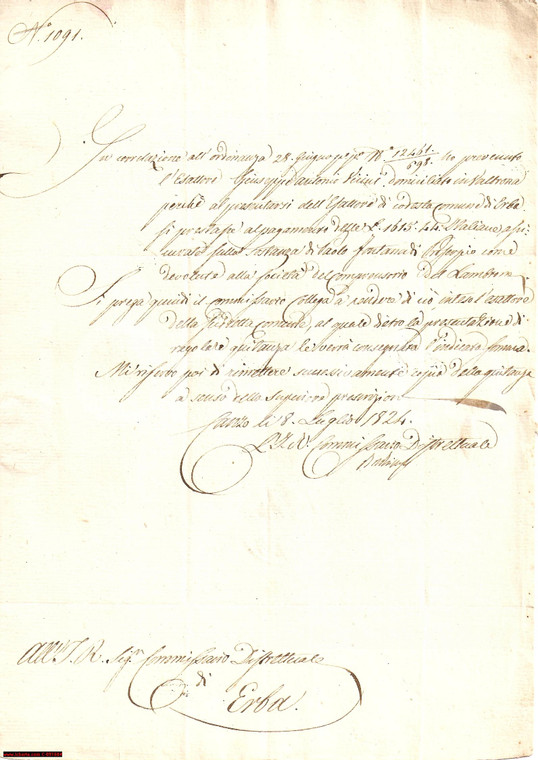 N.° 1091.
In correlazione all'ordinanza 28. Giugno p.p. N.° 12461/698 ho prevenuto
l'Esattore Giuseppe Antonio domiciliato in Valbrona
perchè al presentarsi dell'Esattore di codesta comune di Erba
si prestasse al pagamento delle £. 1615.44. Italiane
sulla sostanza di Paolo Fontana di come
devoluta alla Società del comprensorio del Lambro
Si prega quindi il commissario collega a rendere di ciò inteso l'esattore
della comune, al quale dietro la presentazione di
regolare quitanza le verrà consegnata l'indicata somma.
Mi riservo poi di rimettere successivamente copia della quitanza
a senso della Superiore prescrizione
Canzo li 8. Luglio 1824.
L'I. R. Commissario Distrettuale
All'I. R. Sig.r Commissario Distrettuale
di
Erba.